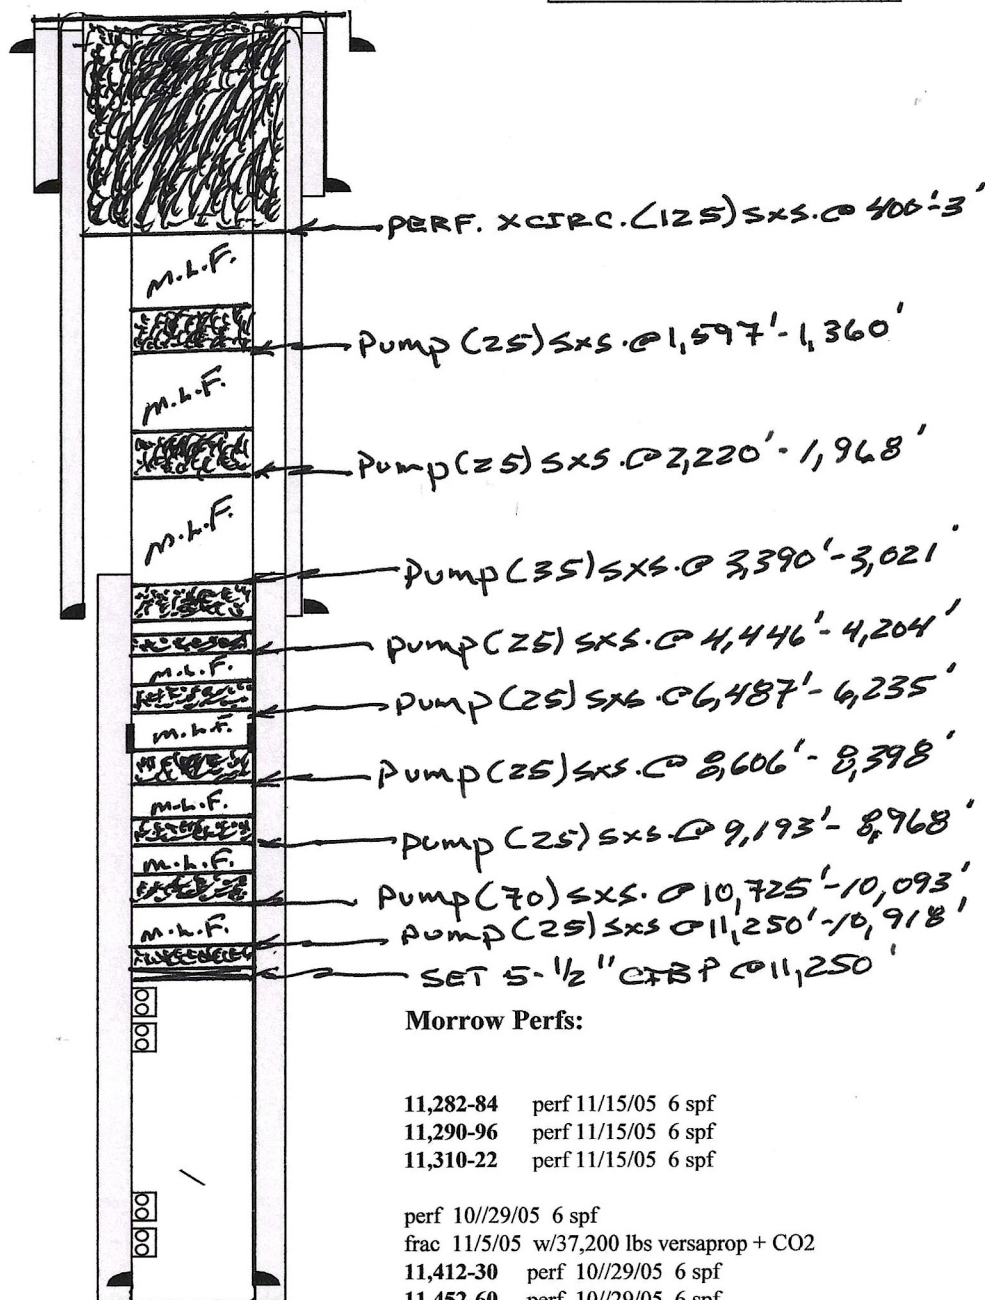 PERF. XCIRC. (125) SXS. @ 400'-3'
M.L.F.
Pump (25) SXS. @ 1,597'-1,360'
M.L.F.
Pump (25) SXS. @ 2,220'-1,968'
M.L.F.
Pump (35) SXS. @ 3,390'-3,021'
Pump (25) SXS. @ 4,446'-4,204'
M.L.F.
Pump (25) SXS. @ 6,487'-6,235'
M.L.F.
Pump (25) SXS. @ 8,606'-8,398'
M.L.F.
Pump (25) SXS. @ 9,193'-8,968'
M.L.F.
Pump (70) SXS. @ 10,725'-10,093'
M.L.F.
Pump (25) SXS @ 11,250'-10,918'
SET 5-1/2" CIBP @ 11,250'
Morrow Perfs:
11,282-84 perf 11/15/05 6 spf
11,290-96 perf 11/15/05 6 spf
11,310-22 perf 11/15/05 6 spf
perf 10//29/05 6 spf
frac 11/5/05 w/37,200 lbs versaprop + CO2
11,412-30 perf 10//29/05 6 spf
11,452-60 perf 10//29/05 6 spf